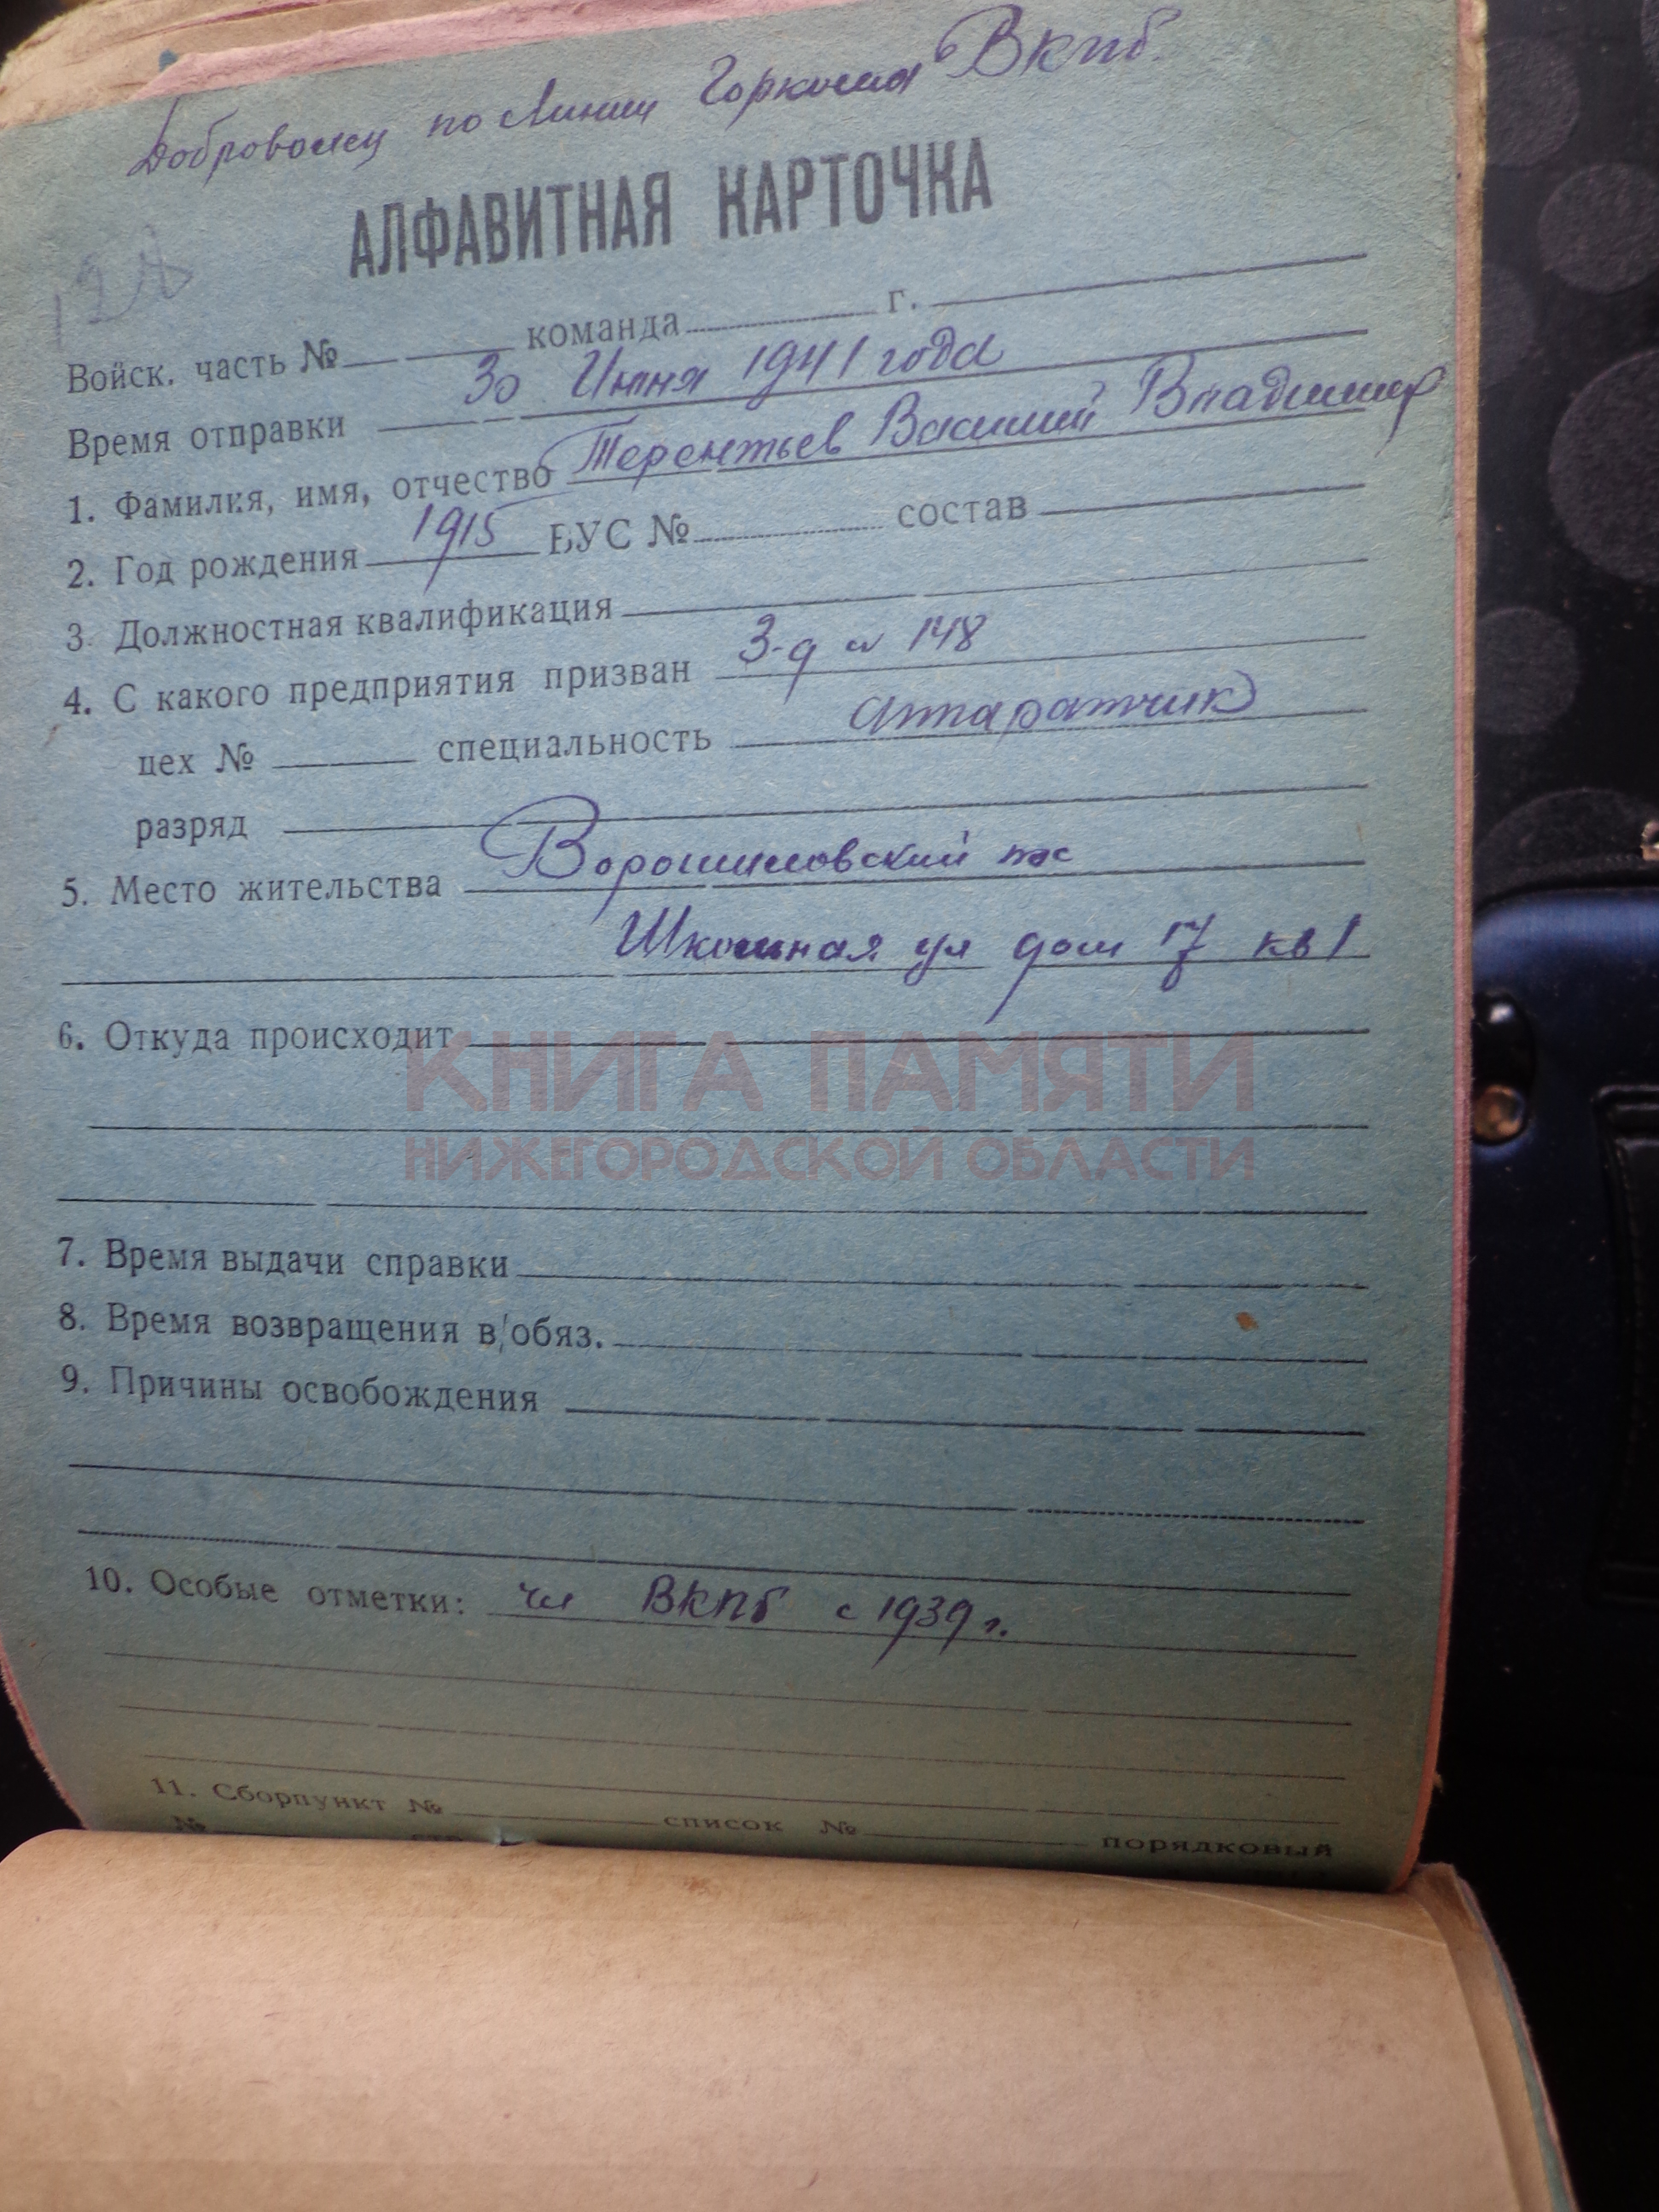 Доброволец по линии Горкома ВКПб.
АЛФАВИТНАЯ КАРТОЧКА
Войск. часть № команда г.
Время отправки 30 Июня 1941 года
1. Фамилия, имя, отчество Терентьев Василий Владимир
2. Год рождения 1915 ВУС № состав
3. Должностная квалификация
4. С какого предприятия призван З-д № 148
цех № специальность аппаратчик
разряд
5. Место жительства Ворошиловский пос
Школьная ул дом 17 кв 1
6. Откуда происходит
КНИГА ПАМЯТИ
НИЖЕГОРОДСКОЙ ОБЛАСТИ
7. Время выдачи справки
8. Время возвращения в/обяз.
9. Причины освобождения
10. Особые отметки: чл ВКПб с 1939 г.
11. Сборпункт № список № порядковый
№